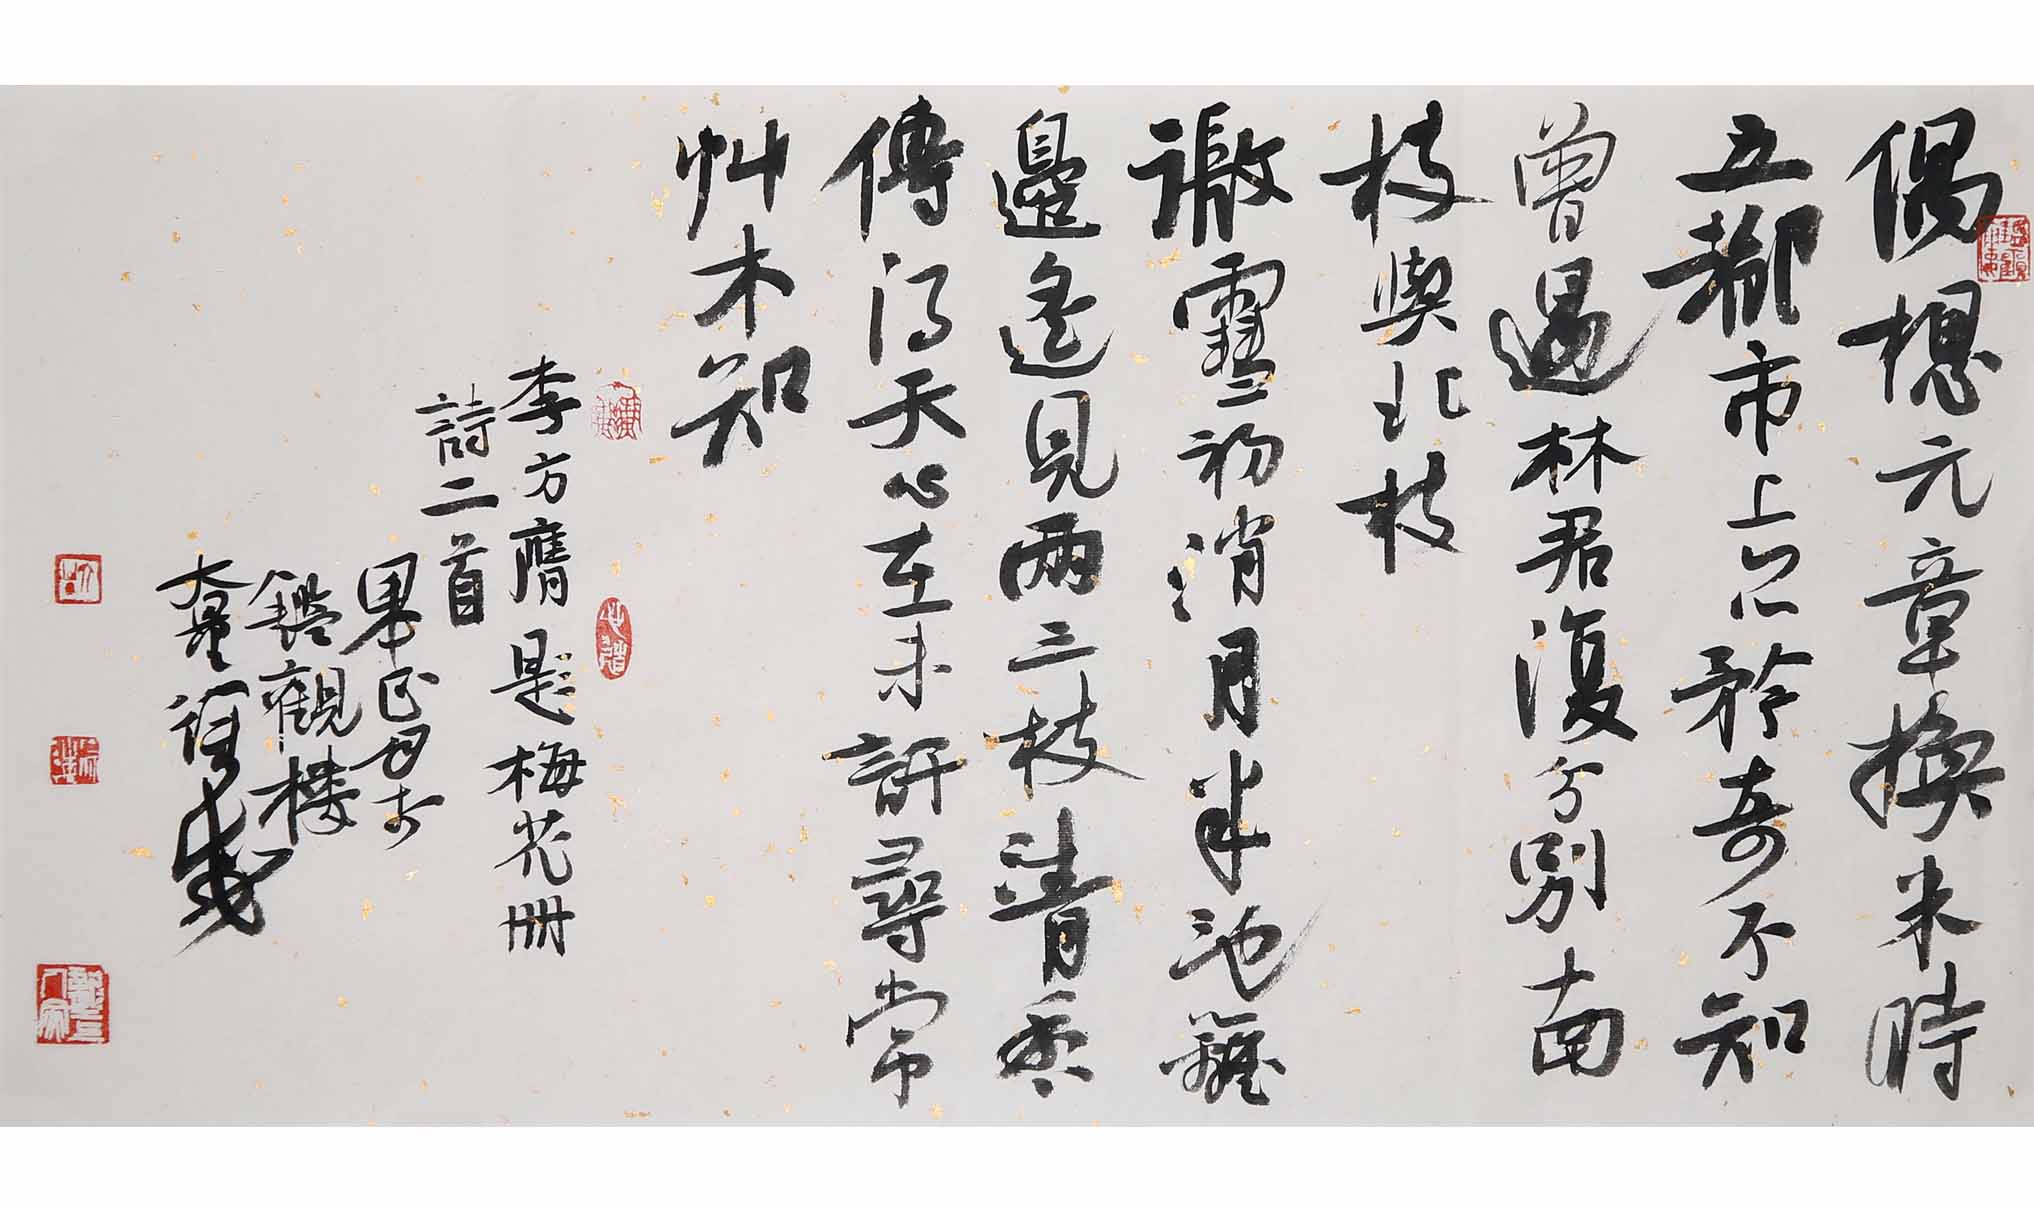 偶想元章換米時
五都市上共矜奇不知
曾遇林君復分別南
枝與北枝
微雪初消月半池籬
邊遙見兩三枝清香
傳得天心在未許尋常
艸木知
李方膺題梅花冊
詩二首
鑑觀樓